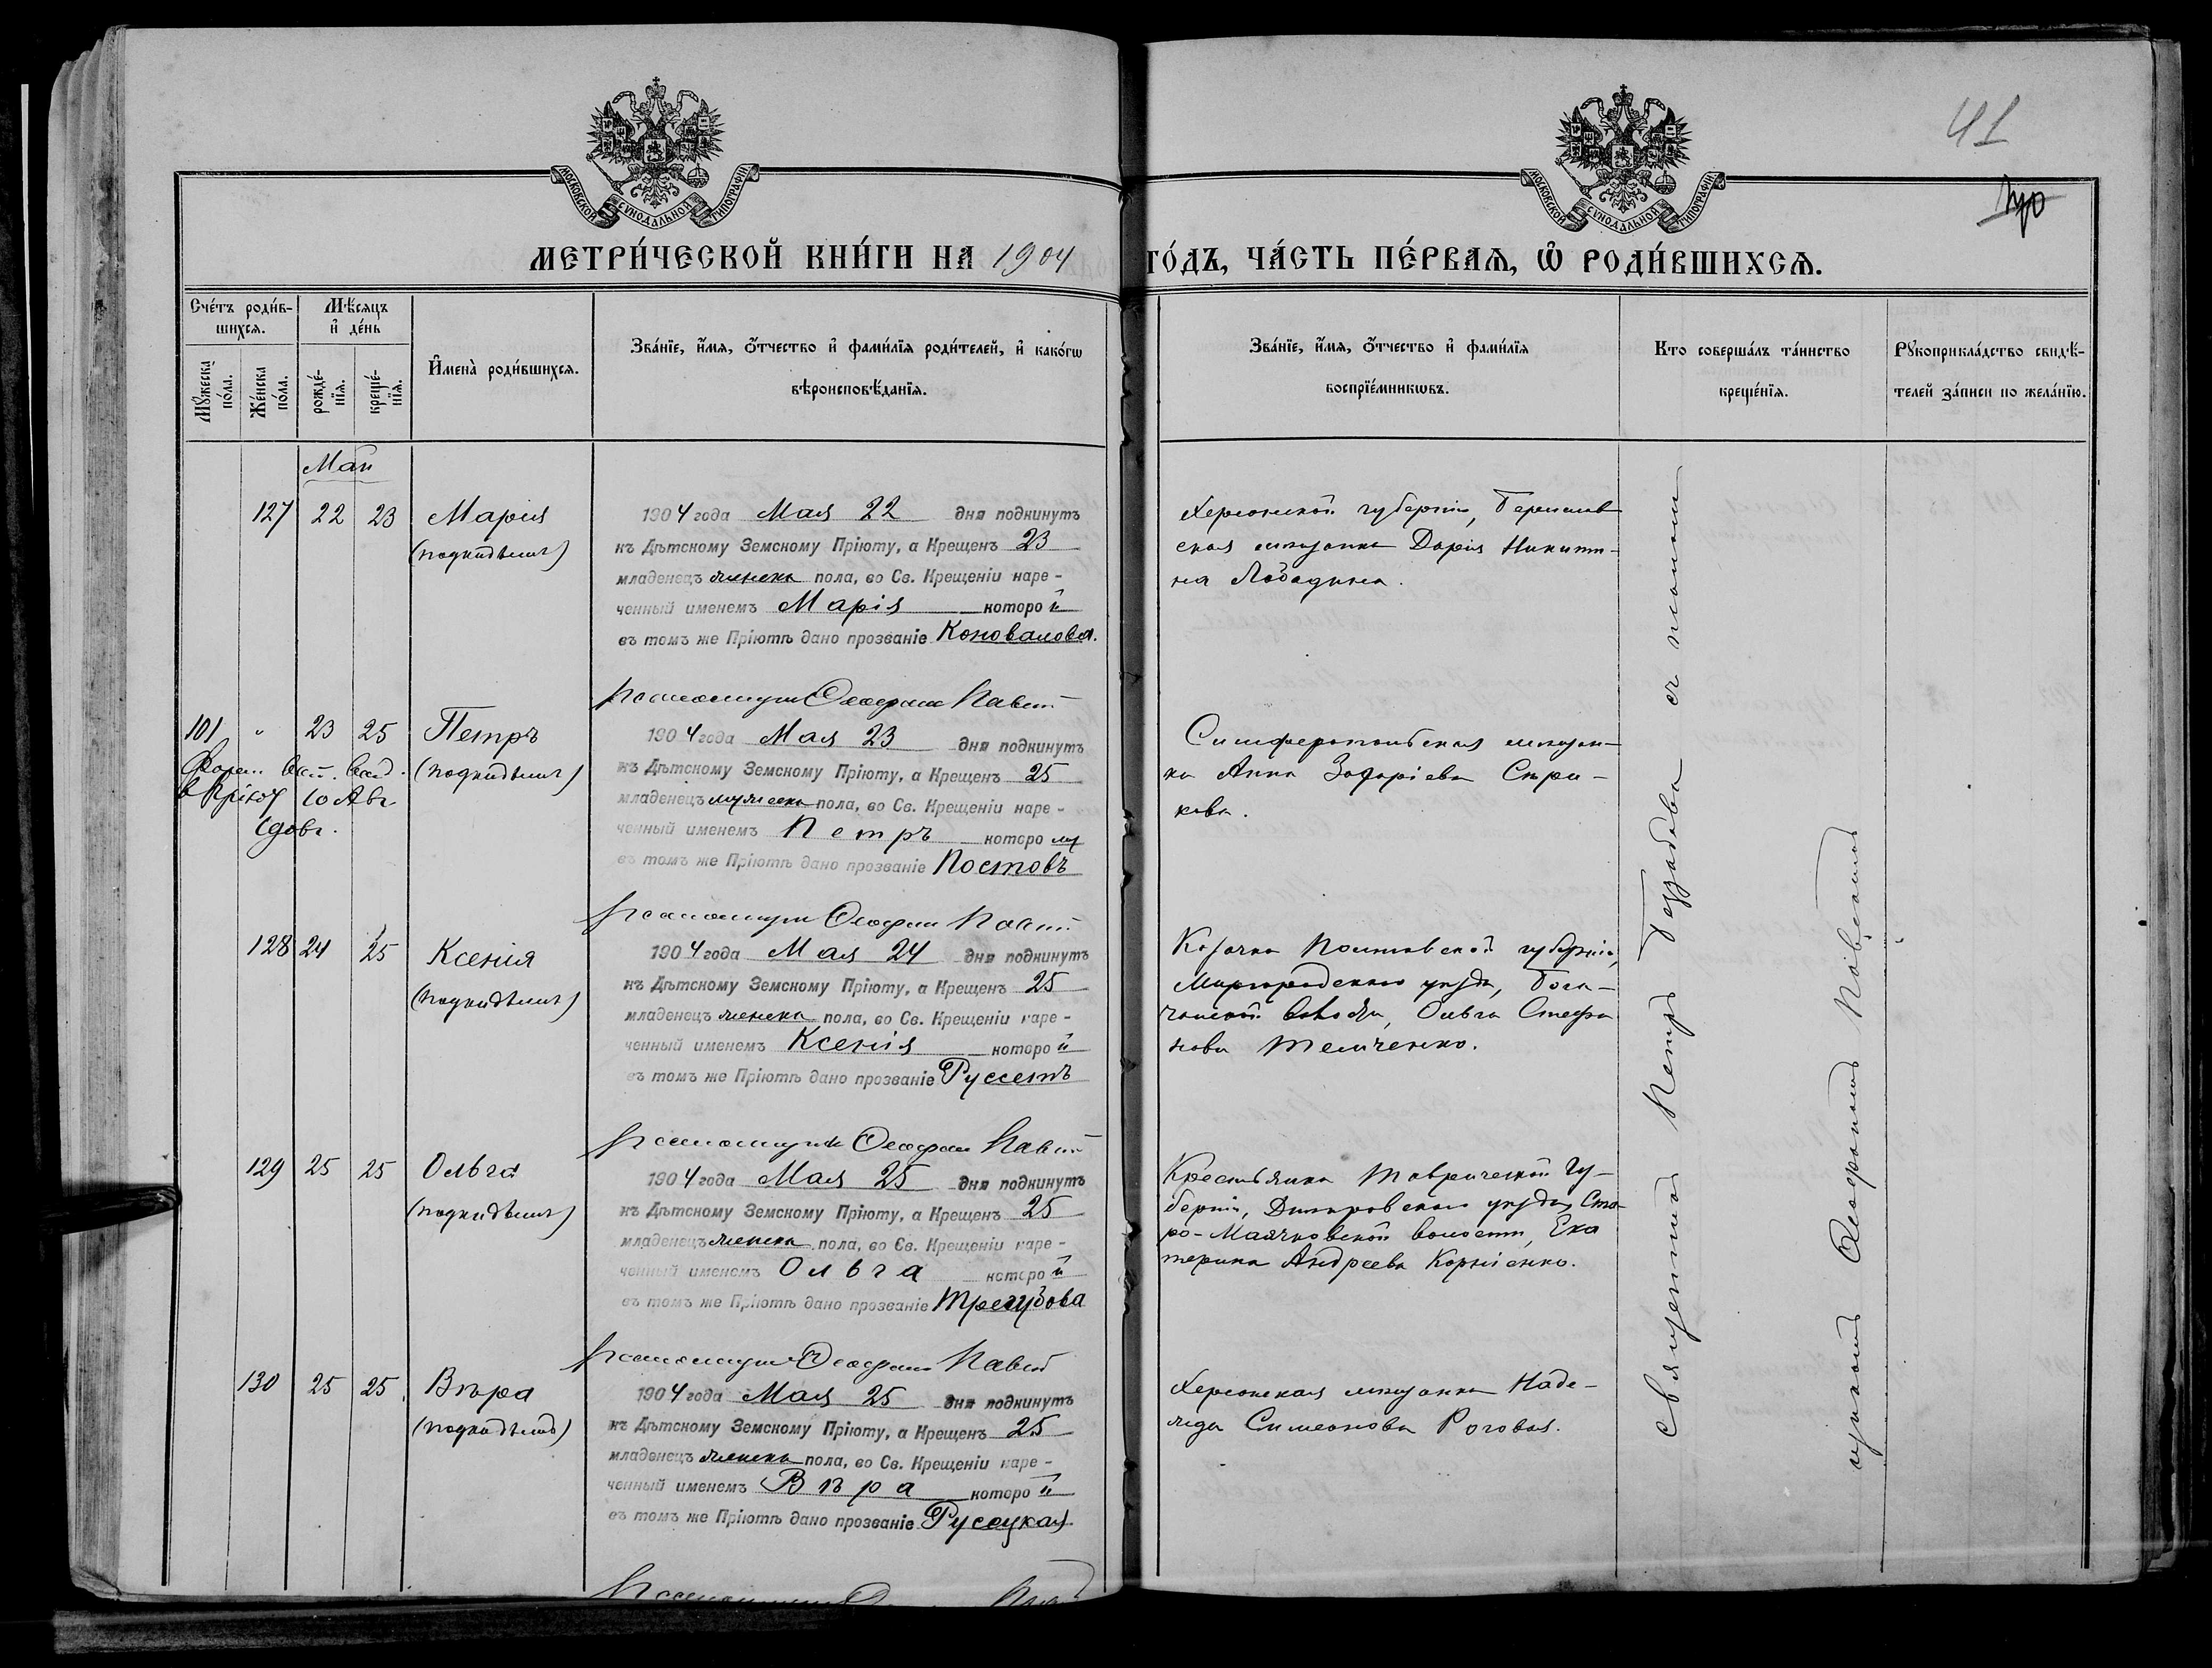 41
МОСКОВСКОЙ СѴНОДАЛЬНОЙ ТИПОГРАФІИ
МОСКОВСКОЙ СѴНОДАЛЬНОЙ ТИПОГРАФІИ
МЕТРИ́ЧЕСКОЙ КНИ́ГИ НА 1904 ГО́ДЪ, ЧА́СТЬ ПЕ́РВАѦ, Ѡ҆ РОДИ́ВШИХСѦ.
Сче́тъ роди́в-
шихсѧ.
Мꙋжеска по́ла.
Же́нска по́ла.
Мѣ́сѧцъ и҆ де́нь
рожде́-
нїѧ.
креще́-
нїѧ.
И҆мена̀ роди́вшихсѧ.
Зва́нїе, и҆́мѧ, ѻ҆́тчество и҆ фами́лїѧ роди́телей, и҆ како́гѡ
вѣроисповѣ́данїѧ.
Зва́нїе, и҆́мѧ, ѻ҆́тчество и҆ фами́лїѧ
воспрїе́мникѡвъ.
Кто соверша́лъ та́инство
креще́нїѧ.
Рꙋкоприкла́дство свидѣ́-
телей за́писи по жела́нїю.
Май
127 22 23 Марія
(подкидышъ)
1904 года Мая 22 дня подкинутъ
къ Дѣтскому Земскому Пріюту, а Крещенъ 23
младенецъ женска пола, во Св. Крещеніи наре-
ченный именемъ Марія которой
въ томъ же Пріютѣ дано прозваніе Коновалова.
Херсонской губерніи,
ская мѣщанка Дарія Никити-
на
101 " 23 25 Петръ
(подкидышъ)
в Пріют 10 Авг.
1904 года Мая 23 дня подкинутъ
къ Дѣтскому Земскому Пріюту, а Крещенъ 25
младенецъ мужеска пола, во Св. Крещеніи наре-
ченный именемъ Петръ которому
въ томъ же Пріютѣ дано прозваніе Постовъ
Симферопольская мѣщан-
ка Анна Захаріева Скри-
кова.
128 24 25 Ксенія
(подкидышъ)
1904 года Мая 24 дня подкинутъ
къ Дѣтскому Земскому Пріюту, а Крещенъ 25
младенецъ женска пола, во Св. Крещеніи наре-
ченный именемъ Ксенія которой
въ томъ же Пріютѣ дано прозваніе Руссетъ
Козачка Полтавской губерніи,
Миргородскаго уѣзда, Бога-
чанской волости, Ольга Стефа
нова Темченко.
129 25 25 Ольга
(подкидышъ)
1904 года Мая 25 дня подкинутъ
къ Дѣтскому Земскому Пріюту, а Крещенъ 25
младенецъ женска пола, во Св. Крещеніи наре-
ченный именемъ Ольга которой
въ томъ же Пріютѣ дано прозваніе Трегубова
Крестьянка Таврической Гу-
берніи, Днѣпровскаго уѣзда, Ста-
ро-Маячковской волости, Ека
терина Андреева Корніенко.
130 25 25 Вѣра
(подкидышъ)
1904 года Мая 25 дня подкинутъ
къ Дѣтскому Земскому Пріюту, а Крещенъ 25
младенецъ женска пола, во Св. Крещеніи наре-
ченный именемъ Вѣра которой
въ томъ же Пріютѣ дано прозваніе Русецкая
Херсонская мѣщанка Наде-
жда Симеонова Роговая.
Священникъ Петръ съ псалом
щикомъ